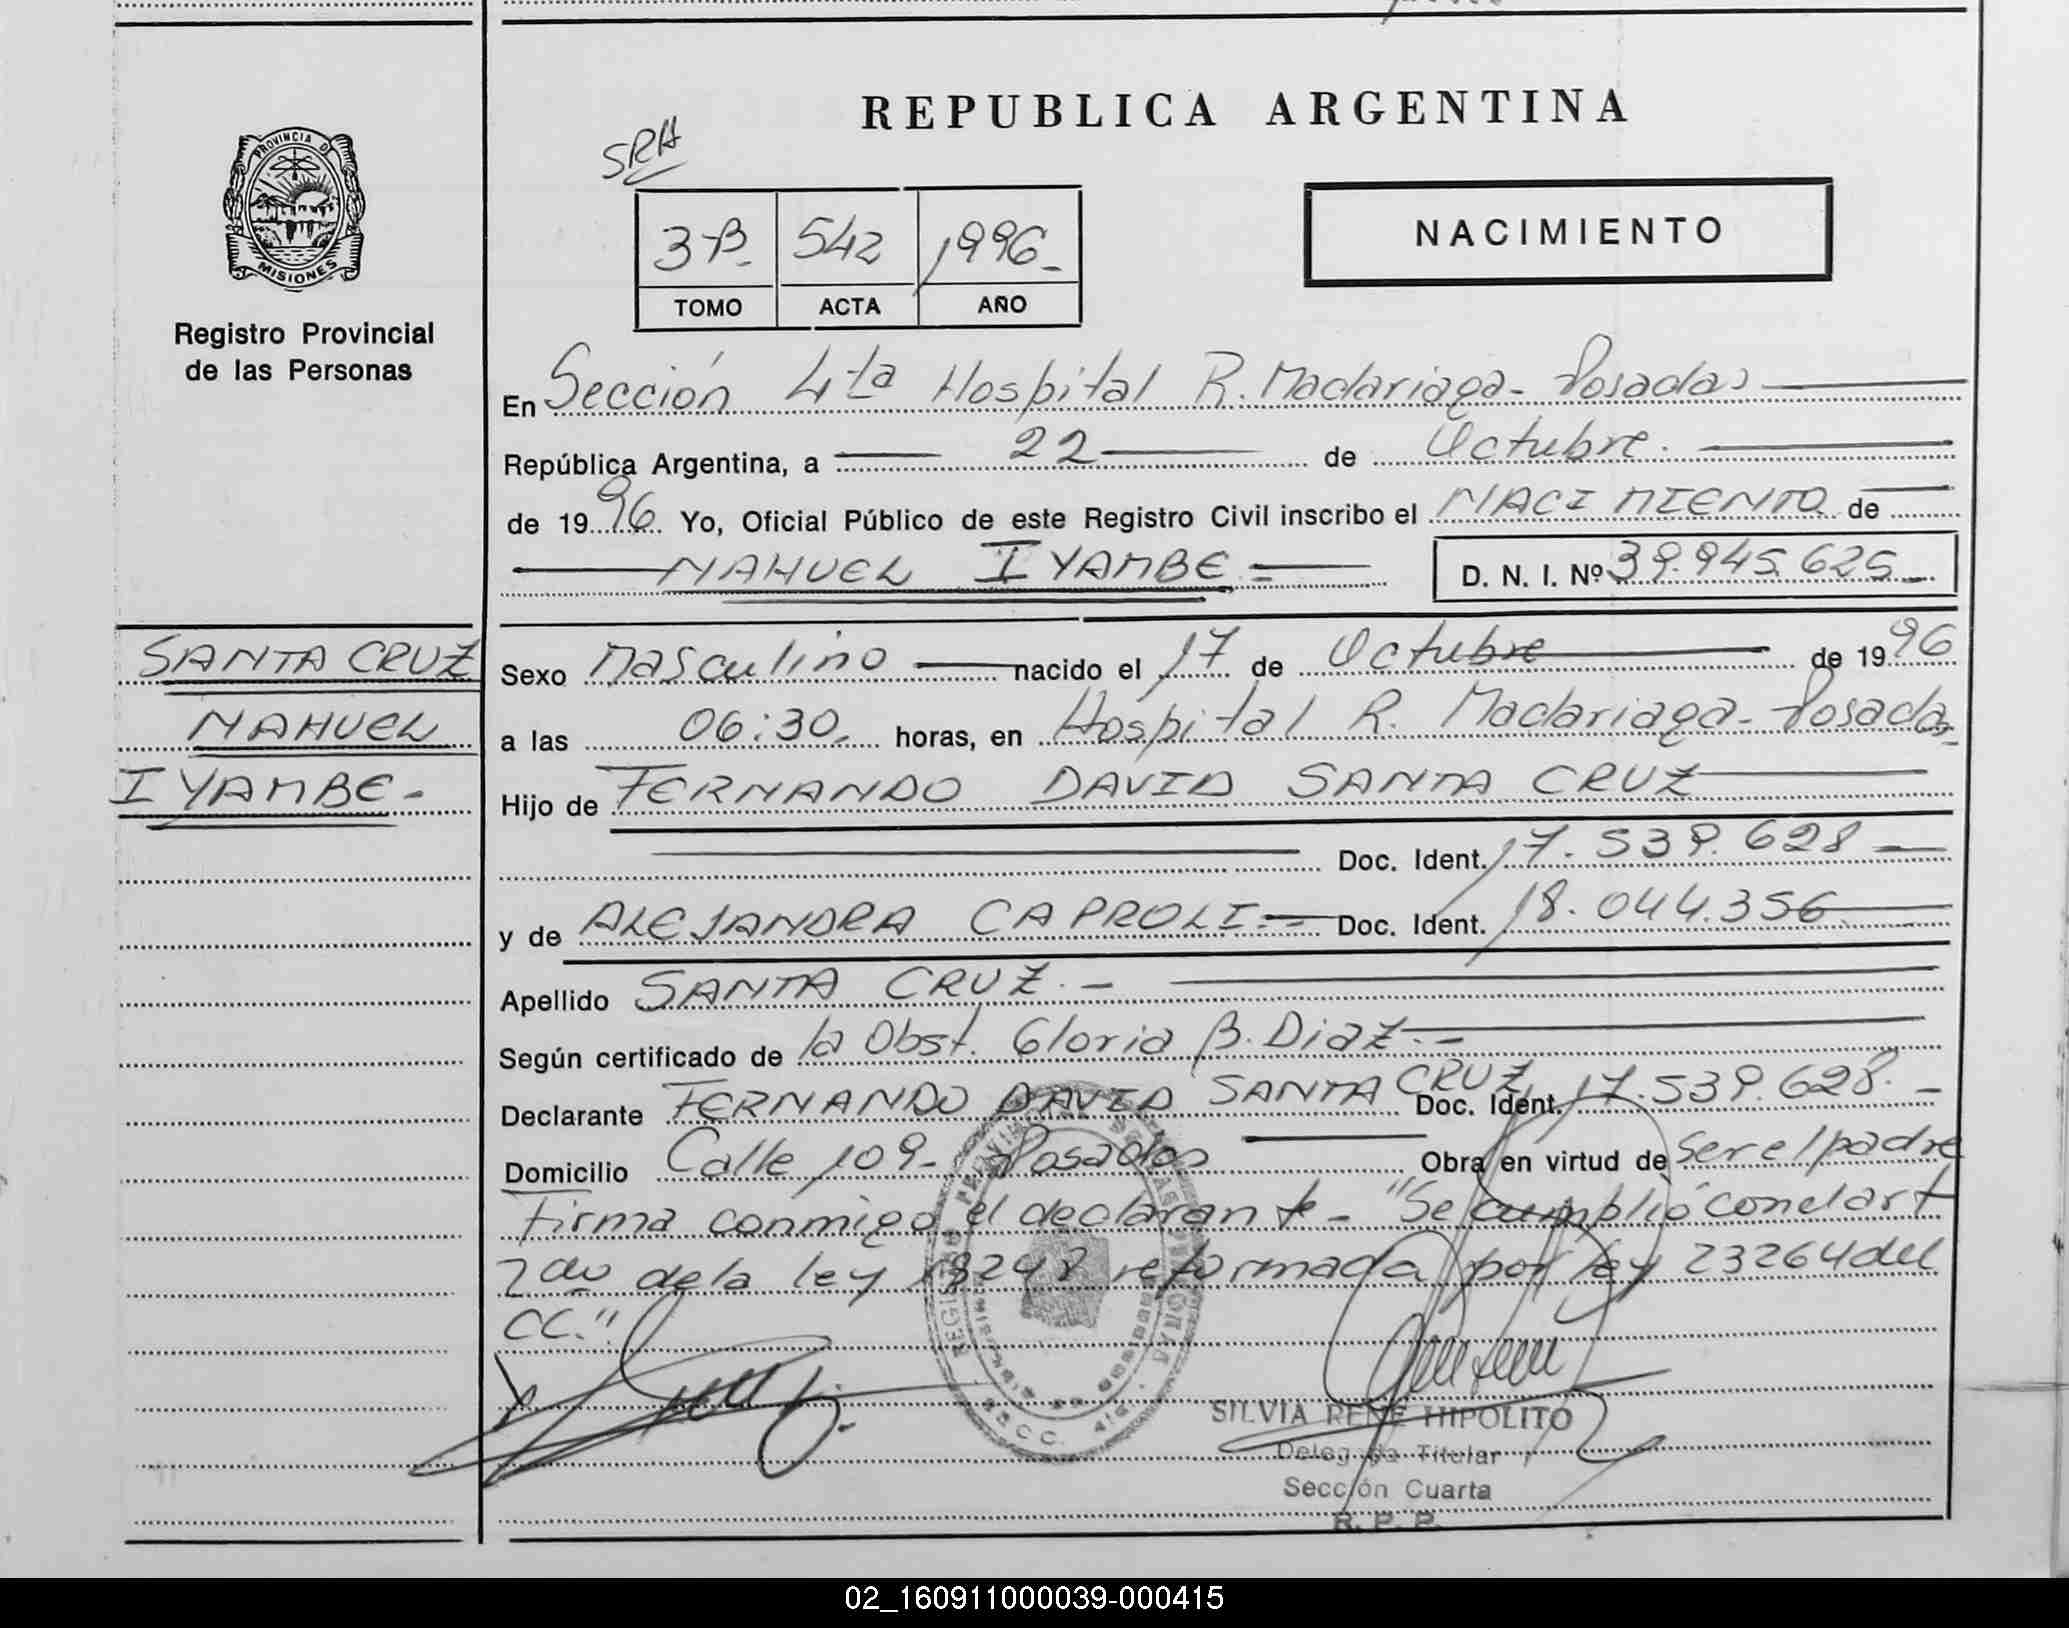 REPUBLICA ARGENTINA
SRH
PROVINCIA D
MISIONES
Registro Provincial
de las Personas
3-B- 542 1996-
TOMO ACTA AÑO
NACIMIENTO
En Sección 4ta Hospital R. Madariaga - Posadas
República Argentina, a 22 de Octubre.
de 1996. Yo, Oficial Público de este Registro Civil inscribo el NACIMIENTO de
NAHUEL IYAMBE.- D. N. I. Nº 39.945.625-
SANTA CRUZ
NAHUEL
IYAMBE.-
Sexo Masculino nacido el 17 de Octubre de 1996
a las 06:30 horas, en Hospital R. Madariaga - Posadas
Hijo de FERNANDO DAVID SANTA CRUZ
Doc. Ident. 17.539.628
y de ALEJANDRA CAPROLI.- Doc. Ident. 18.044.356
Apellido SANTA CRUZ.-
Según certificado de la Obst. Gloria B. Diaz.-
Declarante FERNANDO DAVID SANTA CRUZ Doc. Ident. 17.539.628.-
Domicilio Calle 109- Posadas Obra en virtud de ser el padre
Firma conmigo el declarante - "Se cumplió con el art
2do de la ley 18248 reformada por ley 23264 del
CC."
SILVIA RENE HIPOLITO
Delegada Titular
Sección Cuarta
R. P. P.
02_160911000039-000415